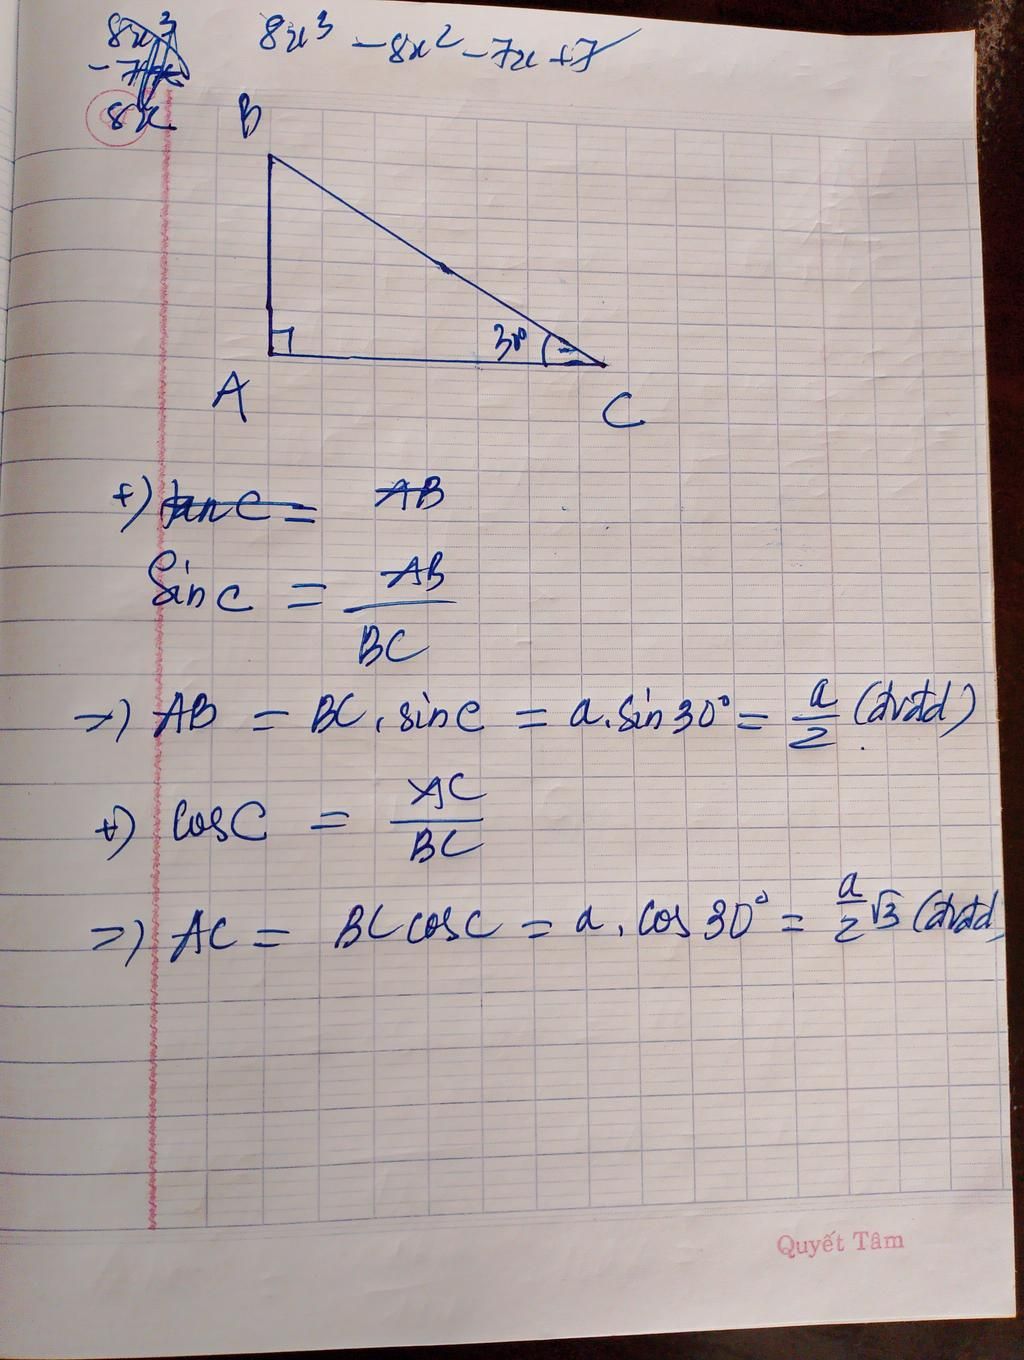 8x³ 8x³ - 8x² - 7x + 7
8x
B
30°
A
C
+) tan C = AB
Sin C = AB / BC
=) AB = BC . sin C = a . sin 30° = a/2 (đvđd)
+) cos C = AC / BC
=) AC = BC cos C = a . cos 30° = a/2 √3 (đvđd)
Quyết Tâm